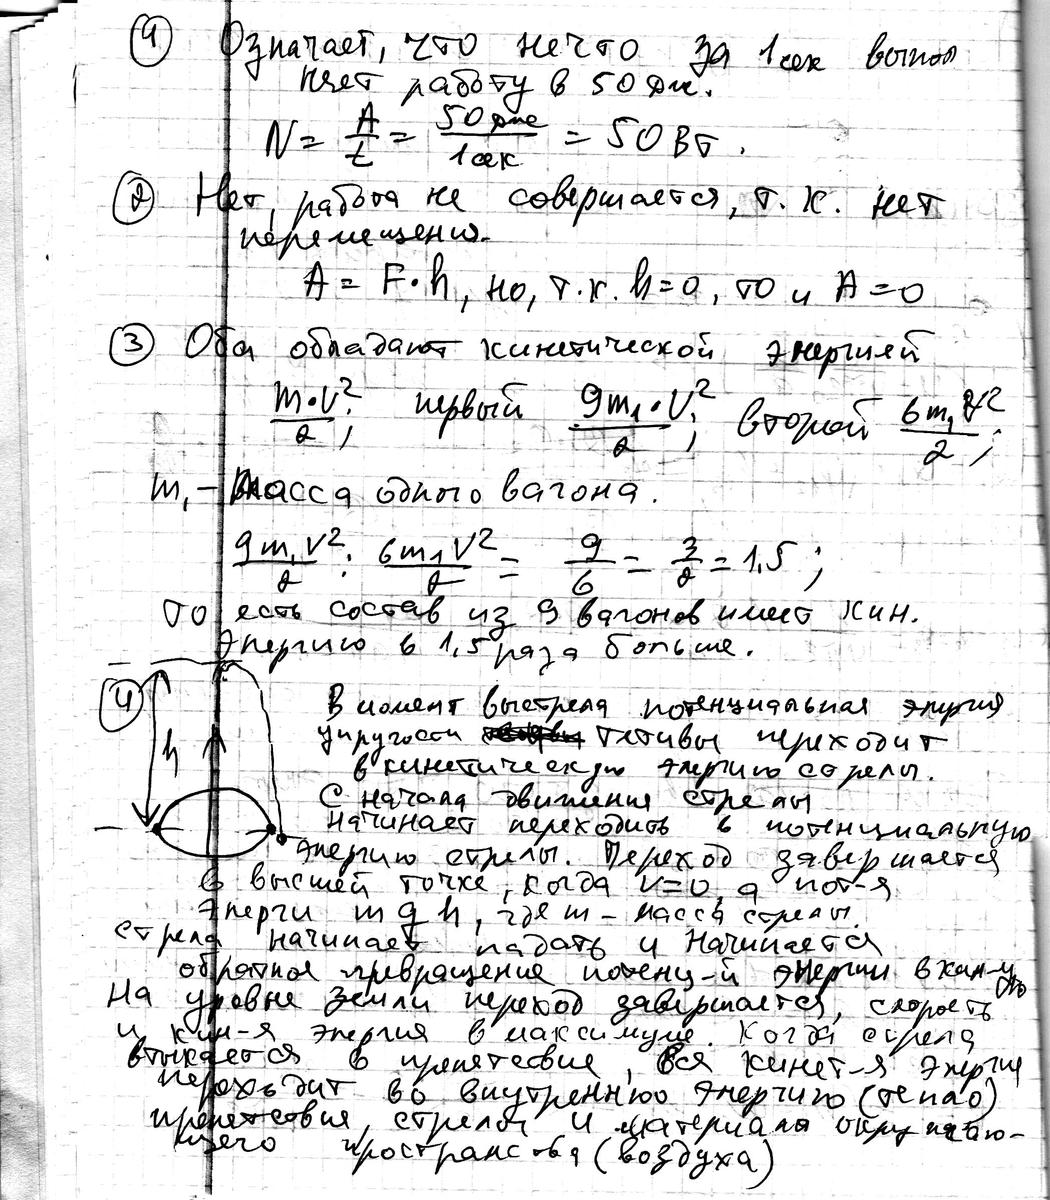 ① Означает, что нечто за 1 сек выпол
няет работу в 50 дж.
N = A/t = 50 дж/1 сек = 50 Вт.
② Нет, работа не совершается, т.к. нет
перемещения.
A = F·h, но, т.к. h=0, то и A=0
③ Оба обладают кинетической энергией
m·V²/2; первый 9m₁·V²/2; второй 6m₁V²/2;
m₁ – масса одного вагона.
9m₁V²/2 : 6m₁V²/2 = 9/6 = 3/2 = 1,5;
то есть состав из 9 вагонов имеет кин.
энергию в 1,5 раза больше.
④ h
В момент выстрела потенциальная энергия
упругости тетивы переходит
в кинетическую энергию стрелы.
С начала движения стрелы
начинает переходить в потенциальную
энергию стрелы. Переход завершается
в высшей точке, когда v=0, а пот-я
энерги mgh, где m – масса стрелы.
Стрела начинает падать и начинается
обратное превращение потенц-й энергии в кин-ую
На уровне земли переход завершается, скорость
и кин-я энергия в максимуме. Когда стрела
втыкается в препятствие, вся кинет-я энергия
переходит во внутреннюю энергию (тепло)
препятствия, стрелы и материала окружаю-
щего пространства (воздуха)